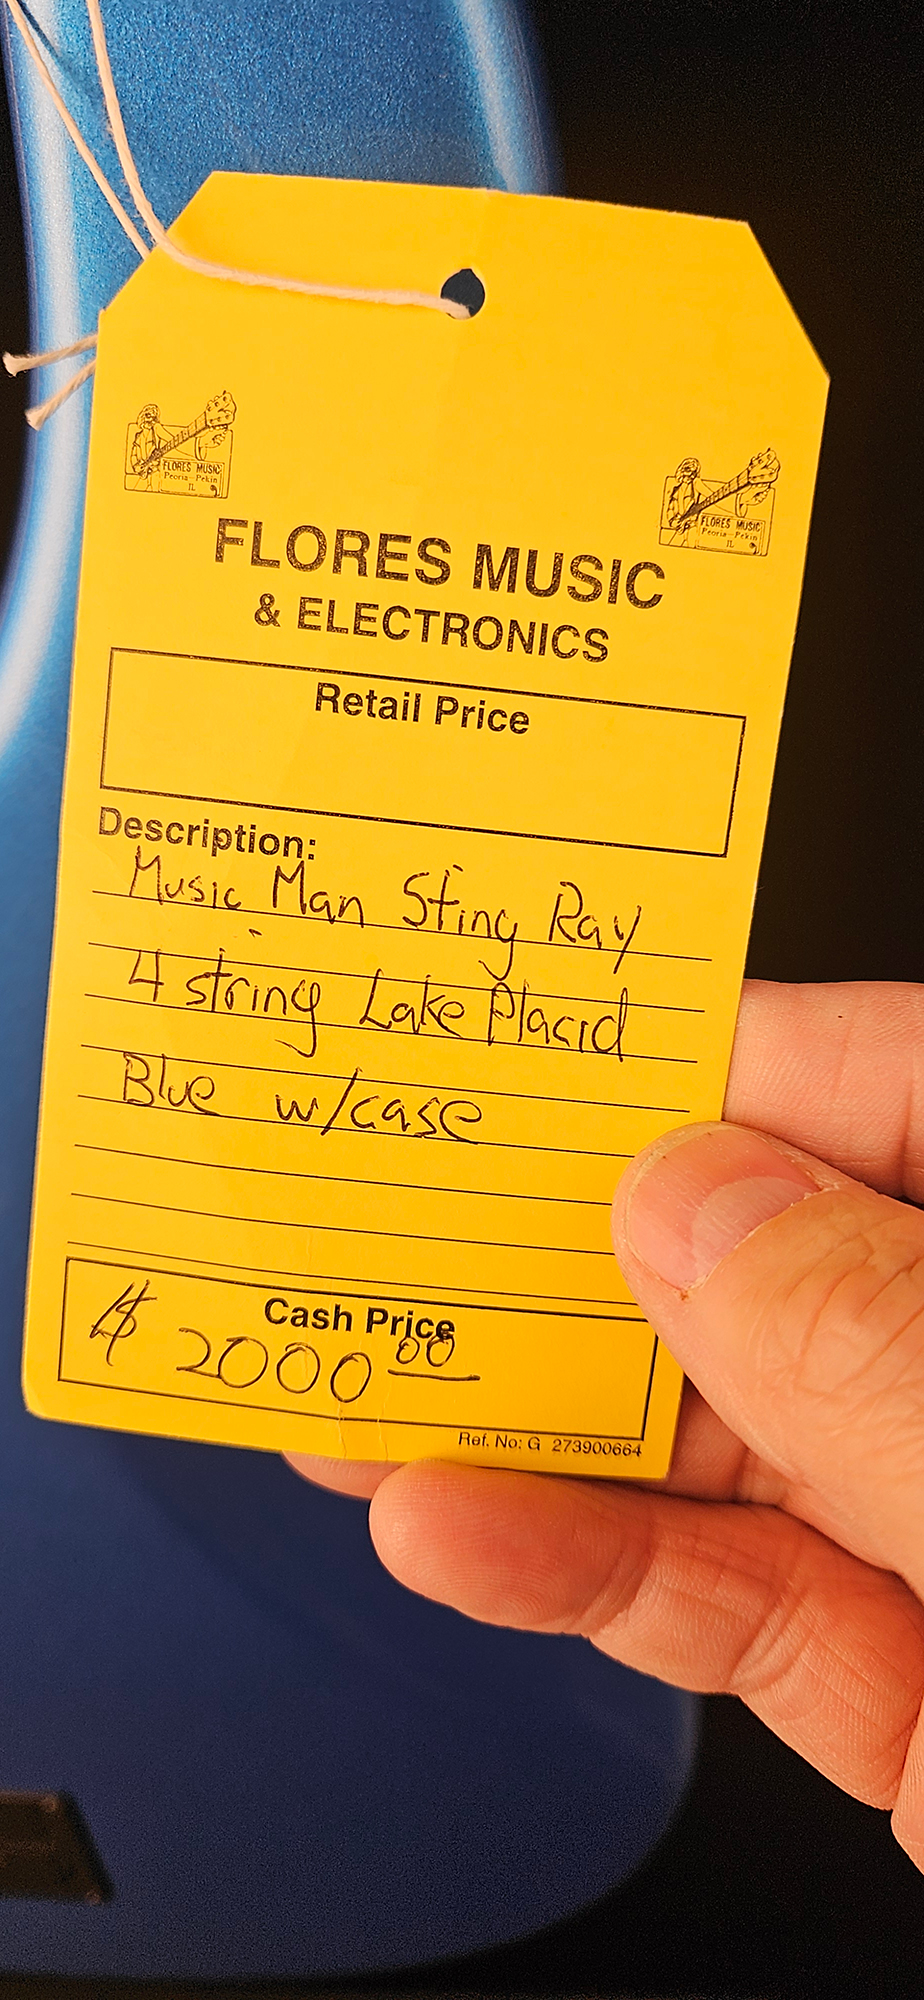 FLORES MUSIC
Peoria-Pekin
IL
FLORES MUSIC
Peoria-Pekin
IL
FLORES MUSIC
& ELECTRONICS
Retail Price
Description:
Music Man Sting Ray
4 string Lake Placid
Blue w/case
Cash Price
$ 2000 00
Ref. No: G 273900664